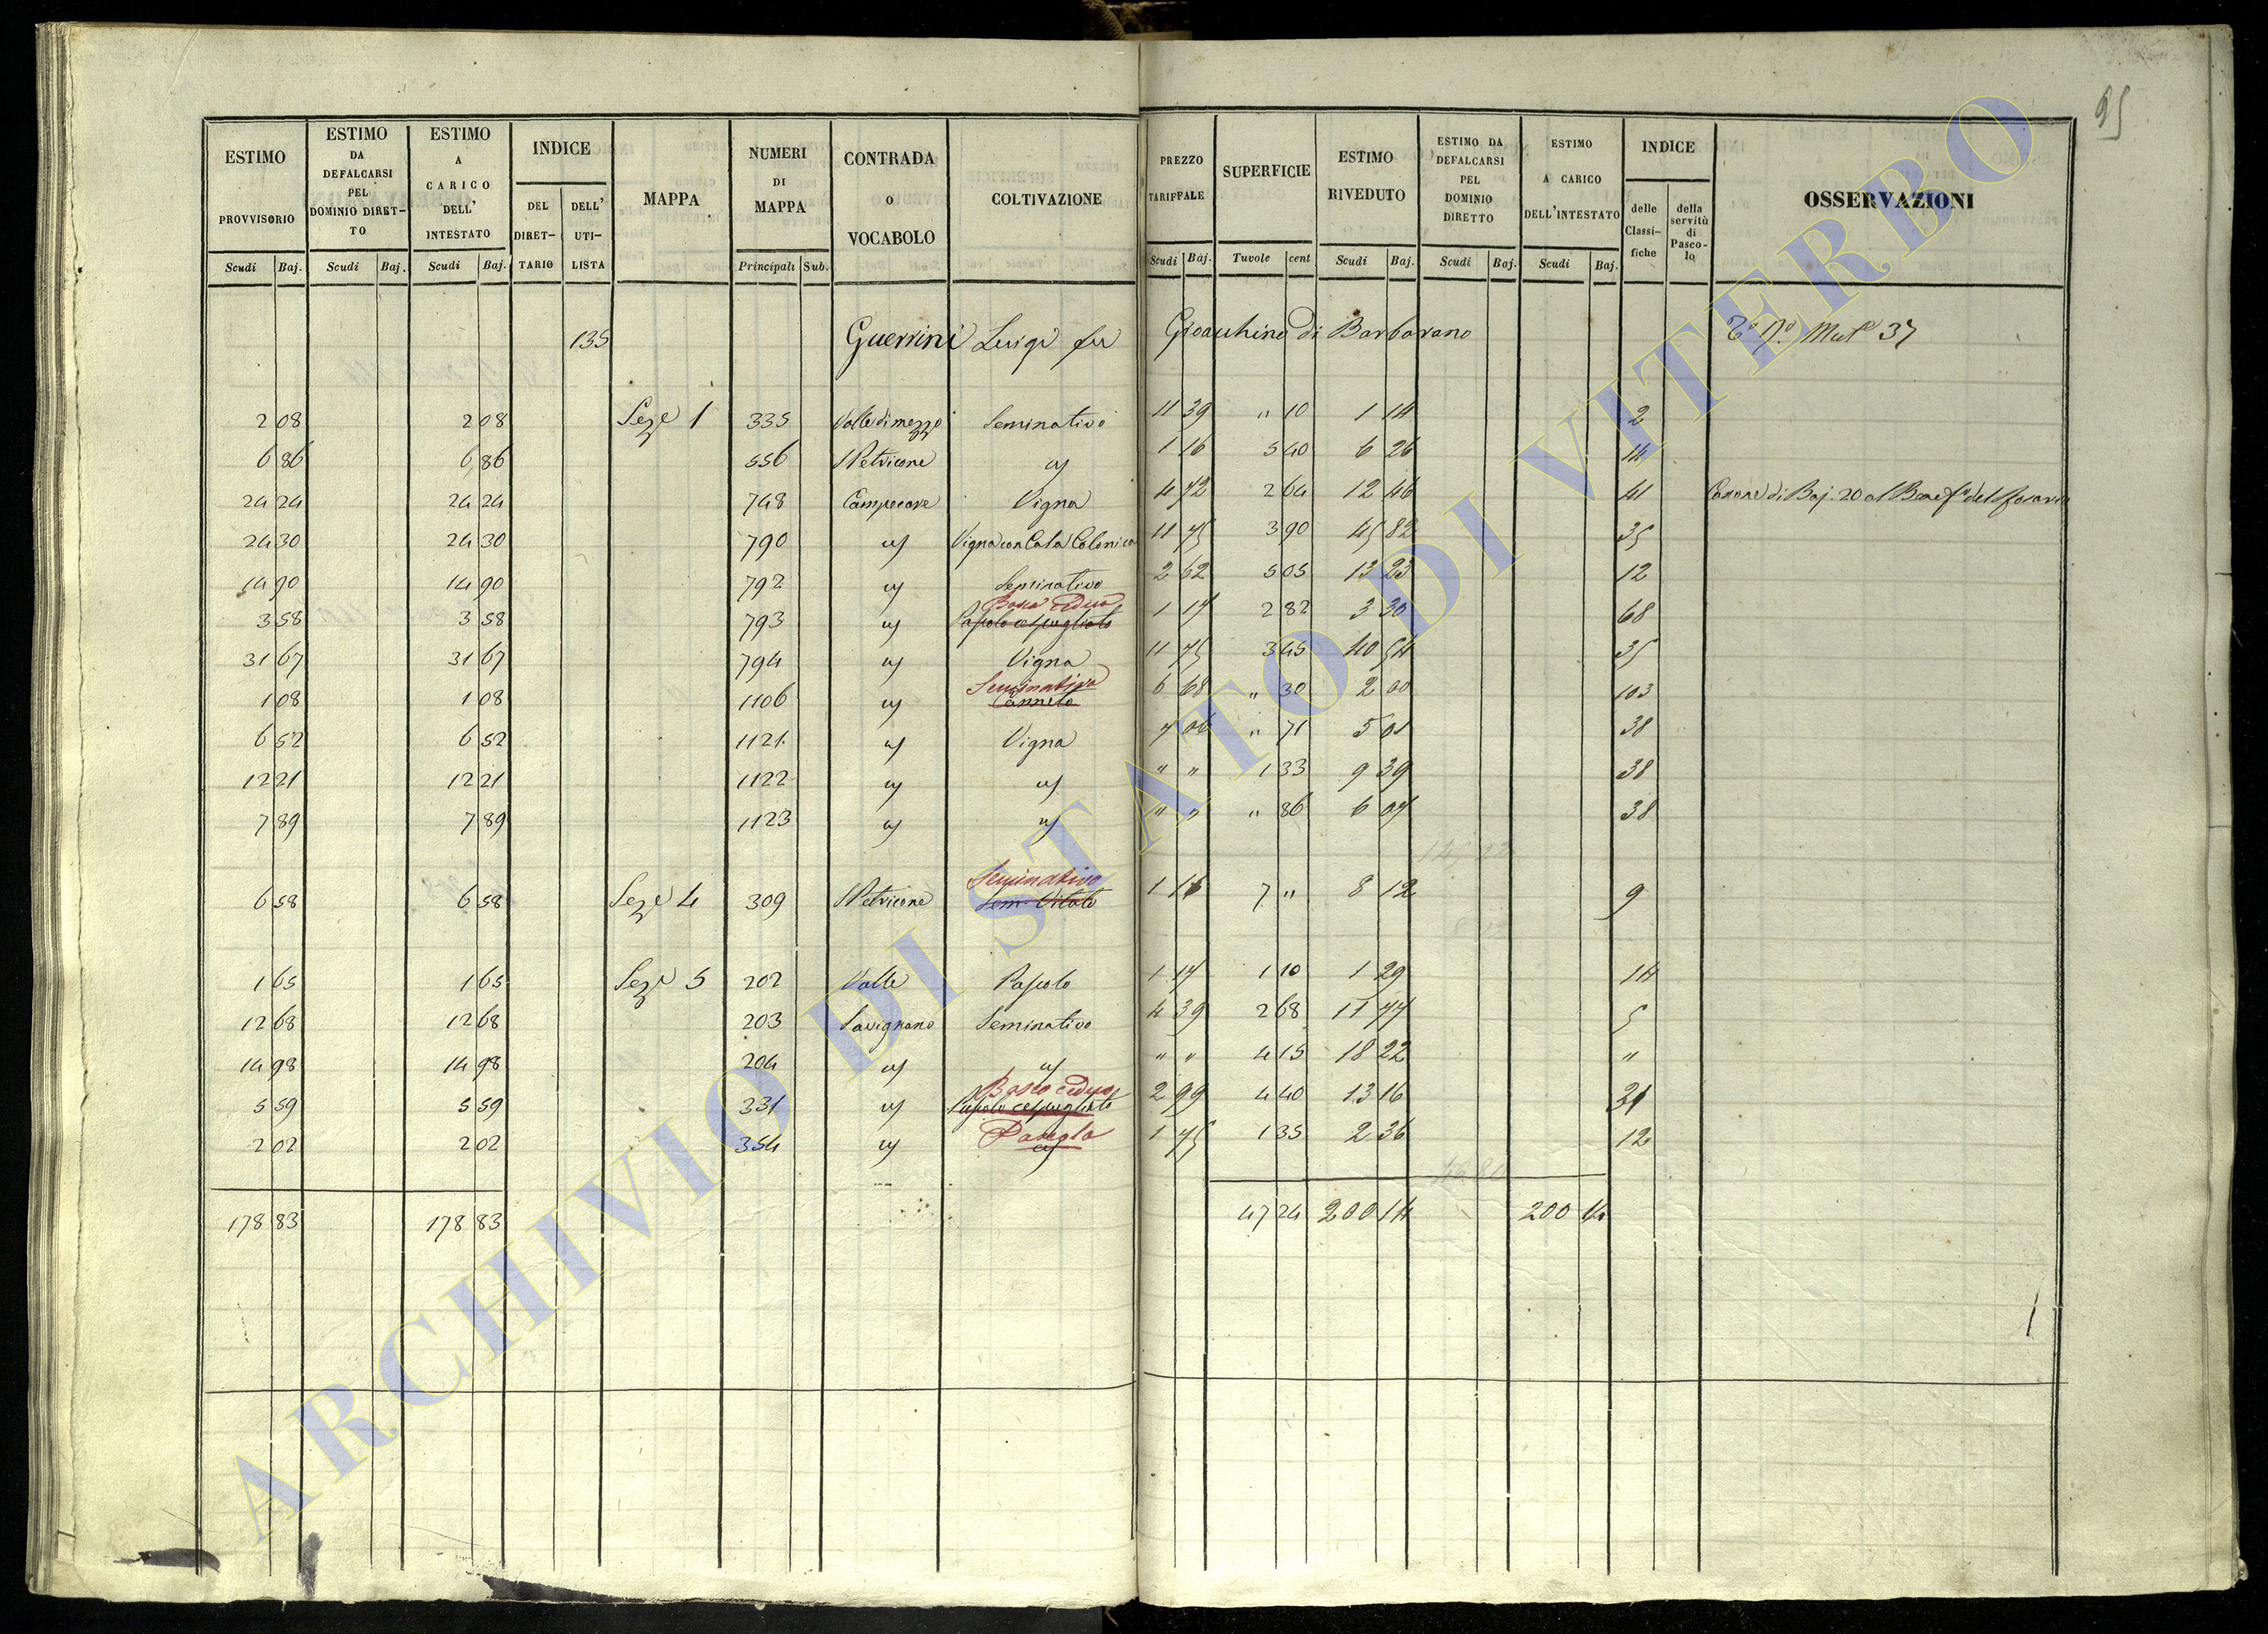 95
ESTIMO PROVVISORIO Scudi Baj. | ESTIMO DA DEFALCARSI PEL DOMINIO DIRET-TO Scudi Baj. | ESTIMO A CARICO DELL' INTESTATO Scudi Baj. | INDICE DEL DIRET-TARIO | DELL' UTI-LISTA | MAPPA | NUMERI DI MAPPA Principali Sub. | CONTRADA O VOCABOLO | COLTIVAZIONE | PREZZO TARIFFALE Scudi Baj. | SUPERFICIE Tavole cent | ESTIMO RIVEDUTO Scudi Baj. | ESTIMO DA DEFALCARSI PEL DOMINIO DIRETTO Scudi Baj. | ESTIMO A CARICO DELL'INTESTATO Scudi Baj. | INDICE delle Classi-fiche | della servitù di Pasco-lo | OSSERVAZIONI
135 Guerrini Luigi fu Gioacchino di Barbarano 37
2 08 2 08 Sez.e 1 335 Valle di mezzo Seminativo 11 39 " 10 1 14 2
6 86 6 86 556 S Petricone id 1 16 5 40 6 26 14
24 24 24 24 748 Campocave Vigna 4 72 2 64 12 46 41 Canone di Baj. 20 al Benef.o del Rosario
24 30 24 30 790 id Vigna con Casa Colonica 11 75 3 90 45 82 35
14 90 14 90 792 id Seminativo 2 62 5 05 13 23 12
Bosco ceduo
3 58 3 58 793 id Pascolo cespugliato 1 17 2 82 3 30 68
31 67 31 67 794 id Vigna 11 75 3 45 40 54 35
Seminativo
1 08 1 08 1106 id Canneto 6 68 " 30 2 00 103
6 52 6 52 1121 id Vigna 7 06 " 71 5 01 38
12 21 12 21 1122 id id " " 1 33 9 39 38
7 89 7 89 1123 id id " " " 86 6 07 38
Seminativo
6 58 6 58 Sez.e 4 309 S Petricone Sem. Vitato 1 16 7 " 8 12 9
1 65 1 65 Sez.e 5 202 Valle Pascolo 1 17 1 10 1 29 14
12 68 12 68 203 Savignano Seminativo 4 39 2 68 11 77 5
14 98 14 98 204 id id " " 4 15 18 22 "
Bosco ceduo
5 59 5 59 331 id Pascolo cespugliato 2 99 4 40 13 16 31
Pascolo
2 02 2 02 354 id id 1 75 1 35 2 36 12
178 83 178 83 47 24 200 14 200 14
ARCHIVIO DI STATO DI VITERBO